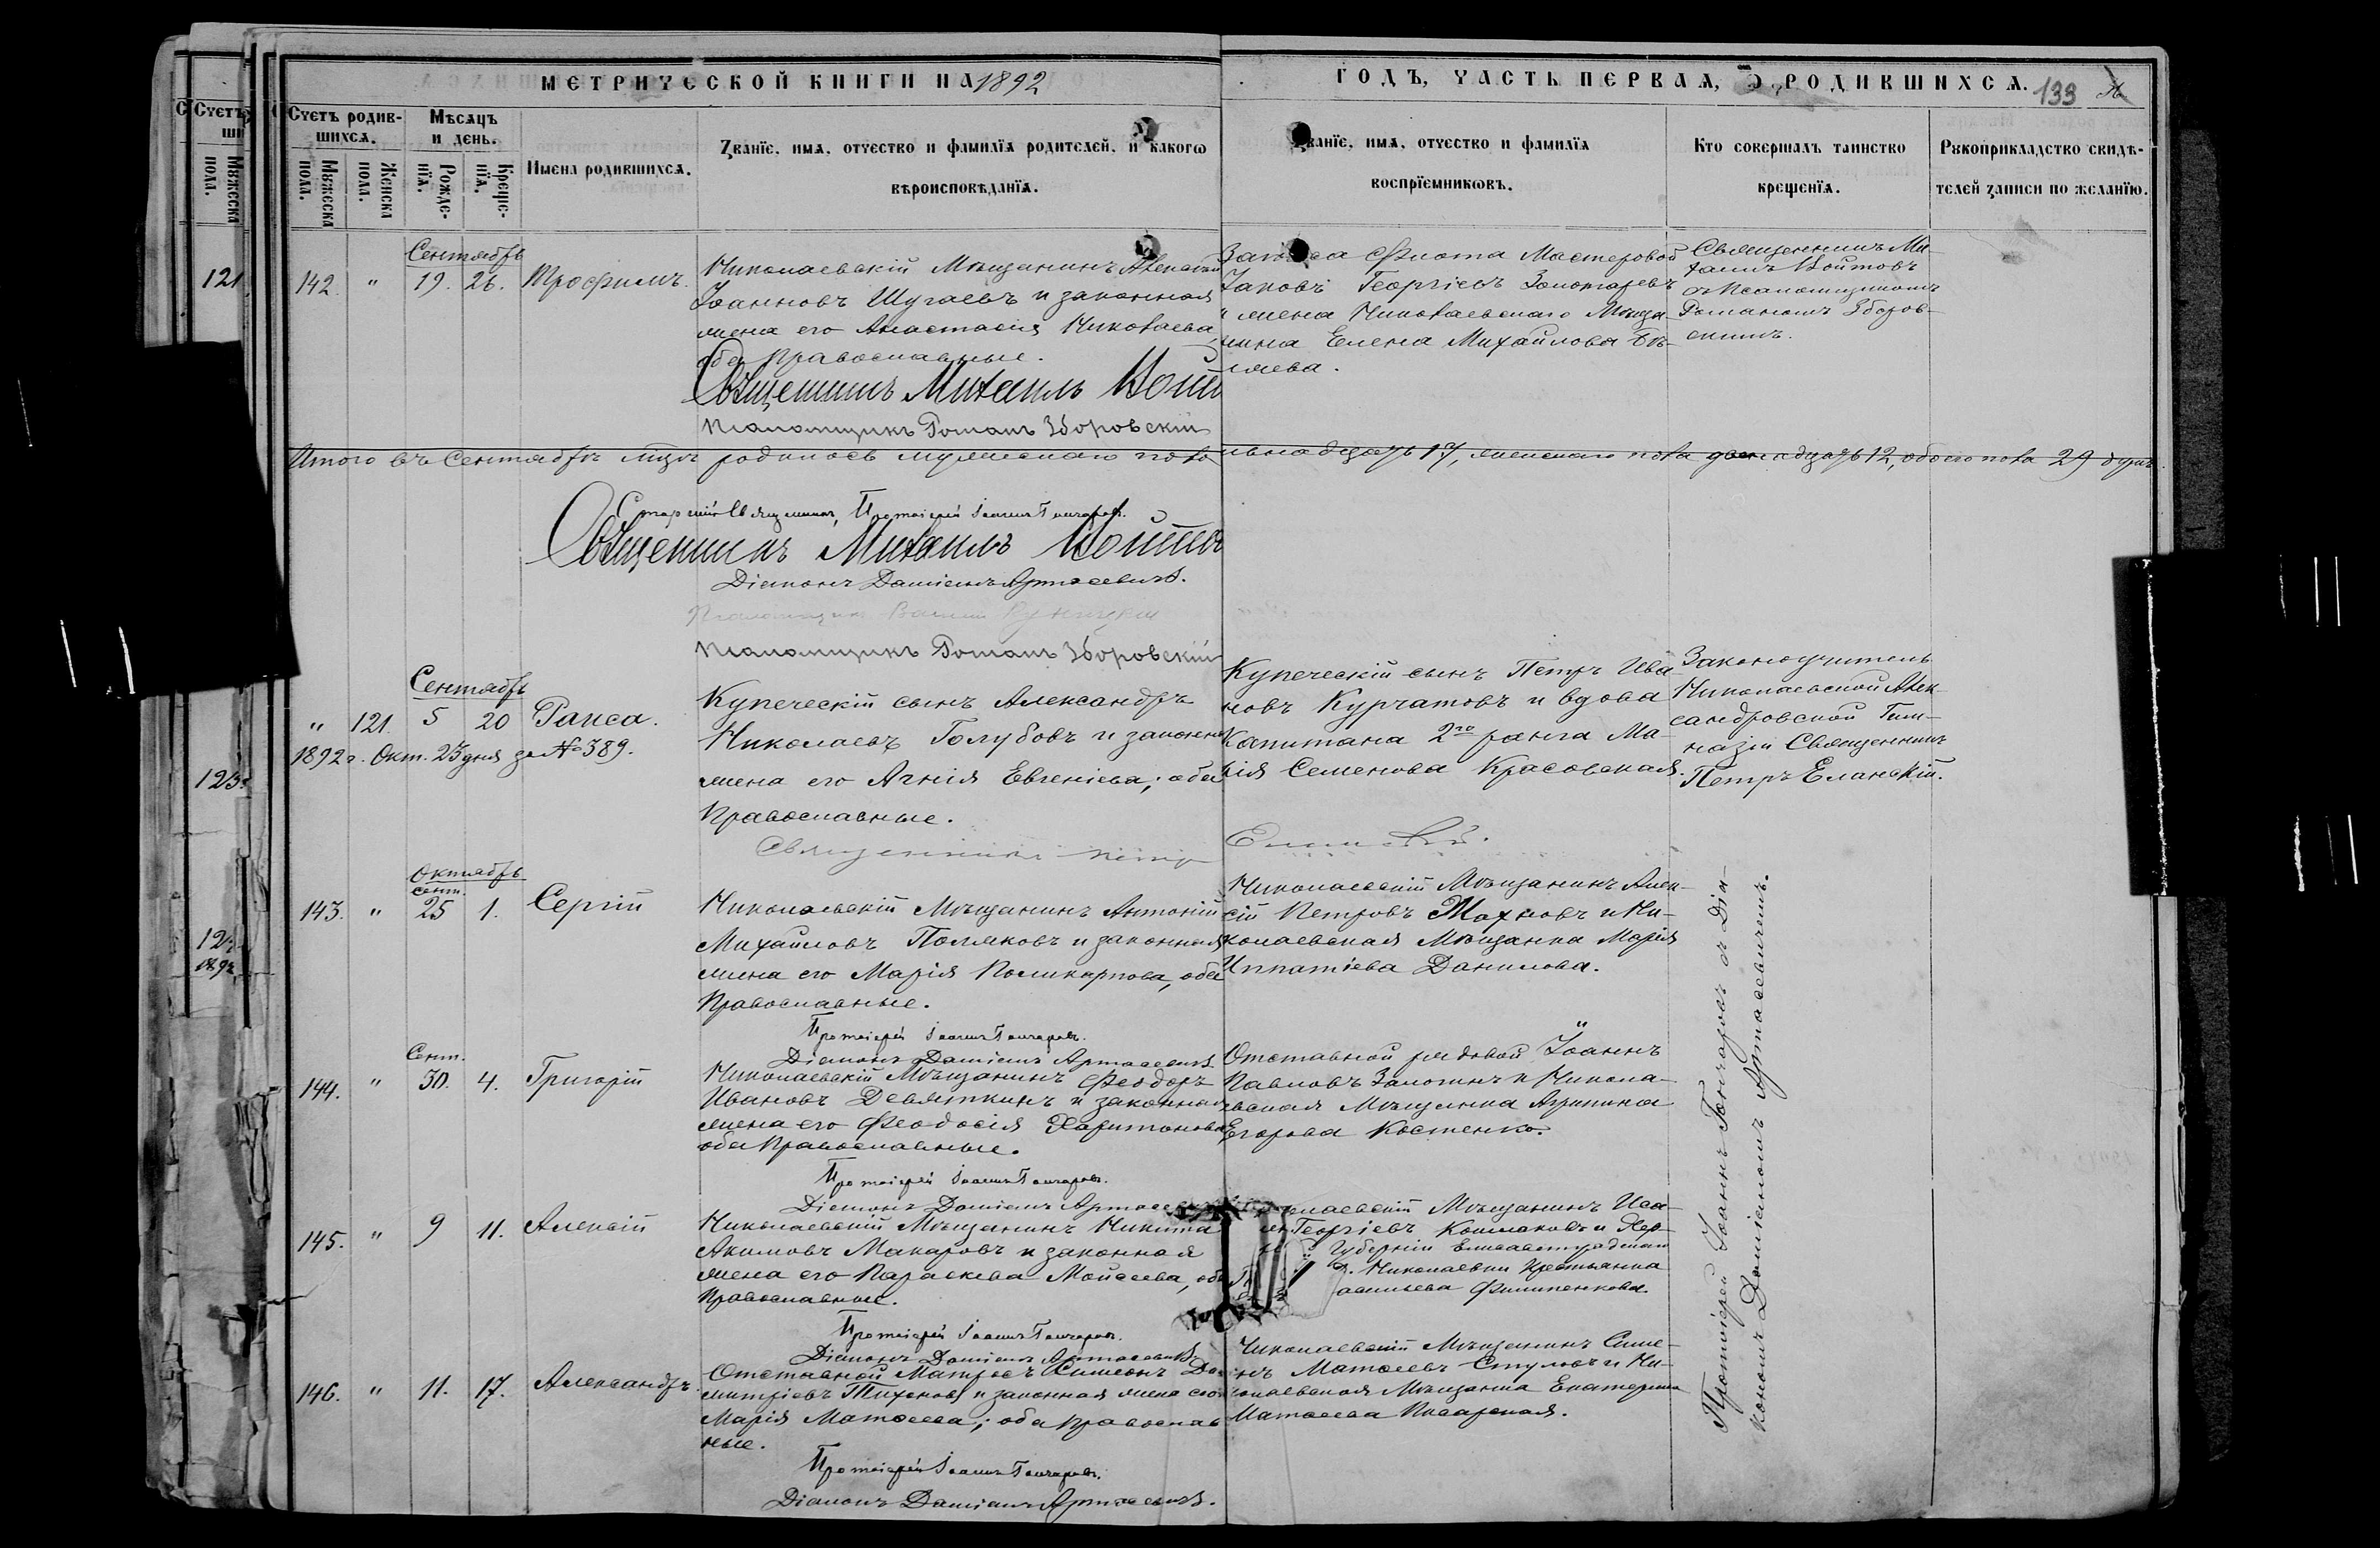 МЕТРИЧЕСКОЙ КНИГИ НА 1892
ГОДЪ, ЧАСТЬ ПЕРВАЯ, Ѡ РОДИВШИХСЯ. 133
Счетъ родив-
шихся.
Мѣсяцъ
и день.
Мужеска
пола.
Женска
пола.
Рожде-
нїя.
Креще-
нїя.
Имена родившихся.
Званїе, имя, отчество и фамилїя родителей, и какогѡ
вѣроисповѣданїя.
Званїе, имя, отчество и фамилїя
воспрїемникѡвъ.
Кто совершалъ таинство
крещенїя.
Рукоприкладство свидѣ-
телей записи по желанїю.
121
Сентябрь
142. " 19. 26. Трофимъ.
Николаевскій Мѣщанинъ Алексѣй
Іоанновъ Шугаевъ и законная
жена его Анастасія Николаева,
оба Православные.
Священникъ Михаилъ
Псаломщикъ Романъ Зборовскій
Запаса Флота Мастеровой
Іаковъ Георгіевъ Золотаревъ
и жена Николаевскаго Мѣща-
нина Елена Михайлова Бѣ-
ляева.
Священникъ Ми-
хаилъ Войтовъ
съ Псаломщикомъ
Романомъ Зборов-
скимъ.
Итого въ Сентябрѣ мцѣ родилось мужескаго пола
семьнадцать 17, женскаго пола двенадцать 12, обоего пола 29 душъ.
Старшій Священникъ, Протоіерей Іоаннъ Гончаровъ.
Священникъ Михаилъ Войтовъ
Діаконъ Даміанъ Артасевичъ.
Псаломщикъ
Псаломщикъ Романъ Зборовскій
Сентябрь
" 121 5 20 Раиса.
1892 г. Окт. 23 дня за № 389.
Купеческій сынъ Александръ
Николаевъ Голубовъ и законная
жена его Агнія Евгеніева; оба
Православные.
Священникъ Петръ Еланскій.
Купеческій сынъ Петръ Ива-
новъ Курчатовъ и вдова
Капитана 2го ранга Ма-
рія Семенова Красовская.
Законоучитель
Николаевской Алек-
сандровской Гим-
назіи Священникъ
Петръ Еланскій.
123
Октябрь
сент.
143. " 25 1. Сергій
Николаевскій Мѣщанинъ Антоній
Михайловъ Поляковъ и законная
жена его Марія Поликарпова, оба
Православные.
Протоіерей Іоаннъ Гончаровъ.
Діаконъ Даміанъ Артасевичъ
Николаевскій Мѣщанинъ Алек-
сій Петровъ Махновъ и Ни-
колаевская Мѣщанка Марія
Ипатіева Данилова.
Сент.
144. " 30. 4. Григорій
Николаевскій Мѣщанинъ Феодоръ
Ивановъ Девяткинъ и законная
жена его Феодосія Харитонова
оба Православные.
Протоіерей Іоаннъ Гончаровъ.
Діаконъ Даміанъ Артасевичъ
Отставной рядовой Іоаннъ
Павловъ Золотинъ и Никола-
евская Мѣщанка Агрипина
Егорова Костенко.
145. " 9 11. Алексій
Николаевскій Мѣщанинъ Никита
Акимовъ Макаровъ и законная
жена его Параскева Моисеева, оба
Православные.
Протоіерей Іоаннъ Гончаровъ.
Діаконъ Даміанъ Артасевичъ
Николаевскій Мѣщанинъ
Георгіевъ Колмаковъ и Хер-
Губерніи Елисаветградскаго
Николаевки Крестьянка
Филипенкова.
146. " 11. 17. Александръ.
Отставной Матросъ Симеонъ
Дмитріевъ Тихоновъ и законная жена его
Марія Матвеева; оба Православ-
ные.
Протоіерей Іоаннъ Гончаровъ.
Діаконъ Даміанъ Артасевичъ.
Николаевскій Мѣщанинъ Симе-
онъ Матвеевъ Стуловъ и Ни-
колаевская Мѣщанка Екатерина
Матвеева Писарская.
Протоіерей Іоаннъ Гончаровъ съ Діа-
кономъ Даміаномъ Артасевичемъ.